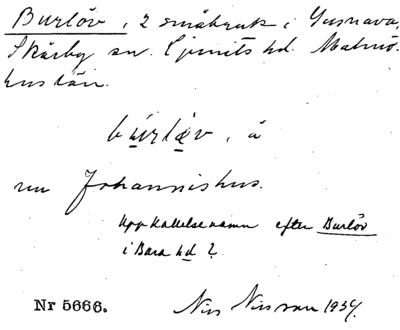 Burlöv, 2 småbruk i Gusnava,
Skårby sn. Ljunits hd. Malmö-
hus län.
búrlǿv, å
nu Johannishus.
Uppkallelsenamn efter Burlöv
i Bara hd ?
Nr 5666. Nils Nilsson 1934.